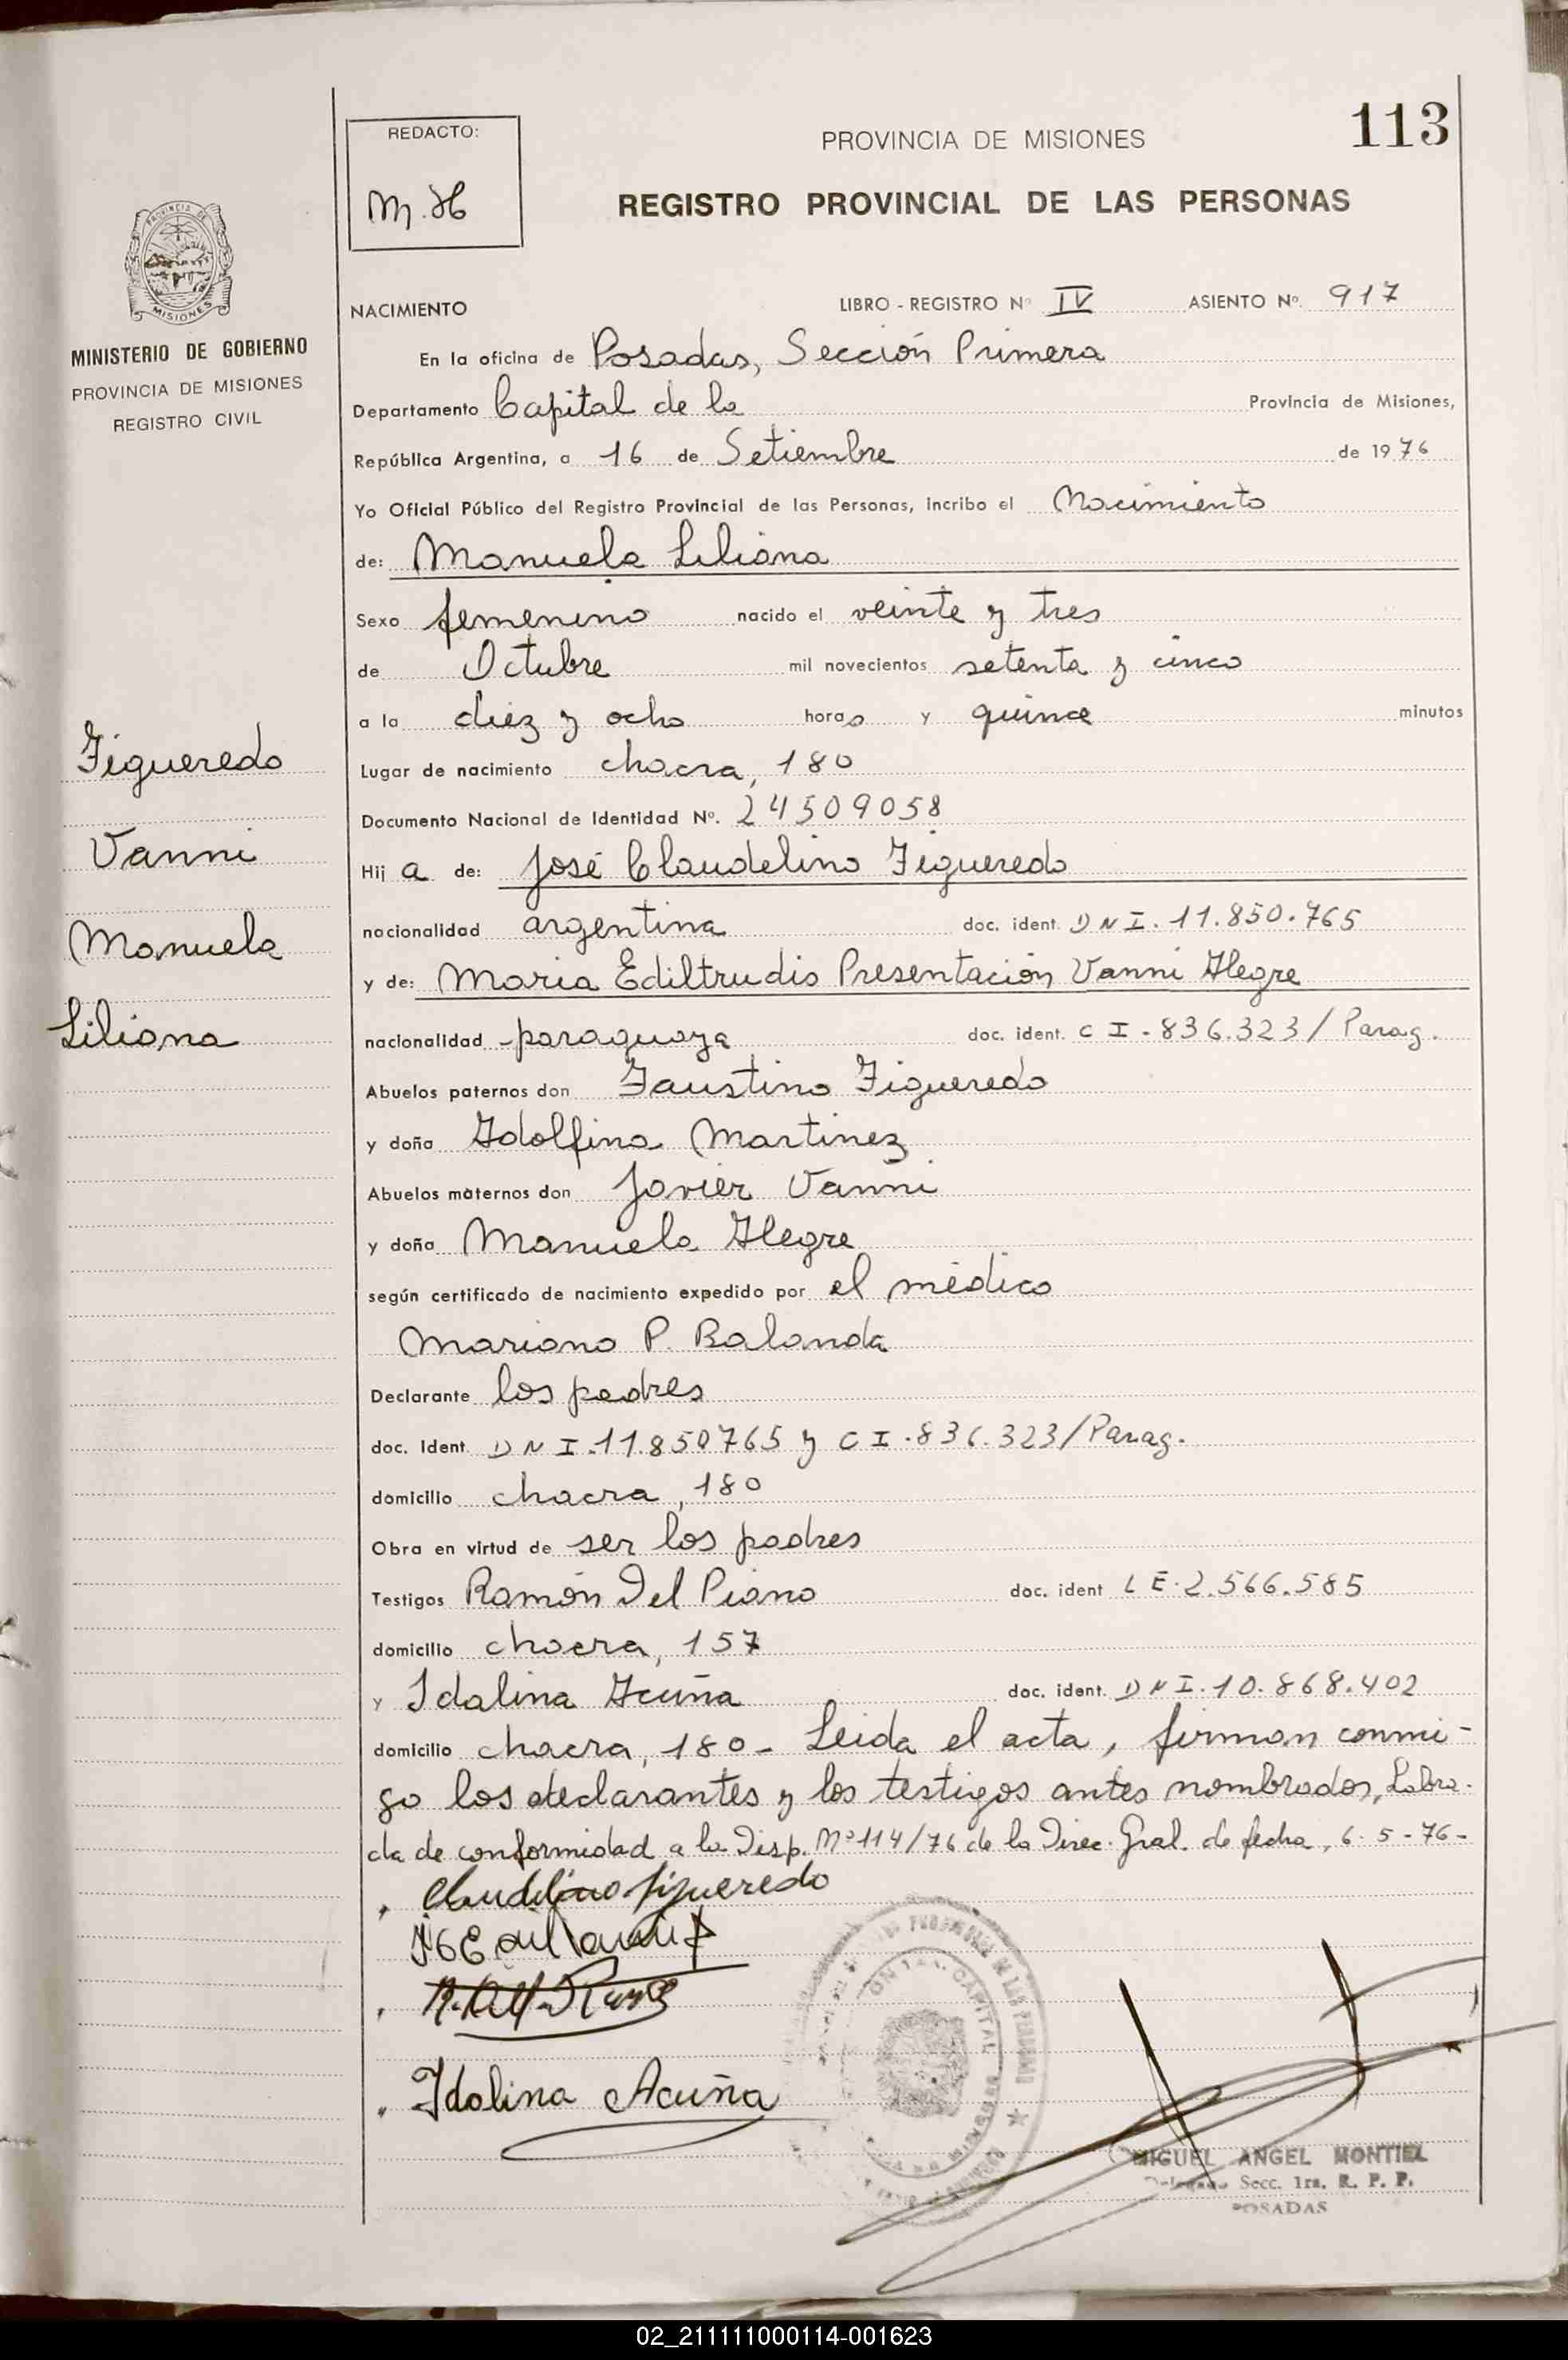 113
REDACTO:
M.H
PROVINCIA DE MISIONES
REGISTRO PROVINCIAL DE LAS PERSONAS
PROVINCIA DE
MISIONES
MINISTERIO DE GOBIERNO
PROVINCIA DE MISIONES
REGISTRO CIVIL
NACIMIENTO LIBRO - REGISTRO Nº IV ASIENTO Nº. 917
En la oficina de Posadas, Sección Primera
Departamento Capital de la Provincia de Misiones,
República Argentina, a 16 de Setiembre de 1976
Yo Oficial Público del Registro Provincial de las Personas, incribo el Nacimiento
de: Manuela Liliana
Sexo femenino nacido el veinte y tres
de Octubre mil novecientos setenta y cinco
a la diez y ocho horas y quince minutos
Figueredo
Vanni
Manuela
Liliana
Lugar de nacimiento chacra, 180
Documento Nacional de Identidad Nº. 24509058
Hij a de: José Claudelino Figueredo
nacionalidad argentina doc. ident. DNI. 11.850.765
y de: Maria Ediltrudis Presentación Vanni Alegre
nacionalidad paraguaya doc. ident. CI-836.323/Parag.
Abuelos paternos don Faustino Figueredo
y doña Adolfina Martinez
Abuelos maternos don Javier Vanni
y doña Manuela Alegre
según certificado de nacimiento expedido por el médico
Mariano P. Balanda
Declarante los padres
doc. Ident. DNI.11.850765 y CI.836.323/Parag.
domicilio chacra, 180
Obra en virtud de ser los padres
Testigos Ramón Del Piano doc. ident LE.2.566.585
domicilio chacra, 157
y Idalina Acuña doc. ident. DNI.10.868.402
domicilio chacra, 180- Leida el acta, firman conmi-
go los declarantes y los testigos antes nombrados, Labra-
da de conformidad a la Disp. Nº114/76 de la Direc. Gral. de fecha, 6-5-76-
Claudelino figueredo
Idalina Acuña
CAPITAL
MIGUEL ANGEL MONTIEL
Delegado Secc. 1ra. R. P. P.
POSADAS
02_211111000114-001623